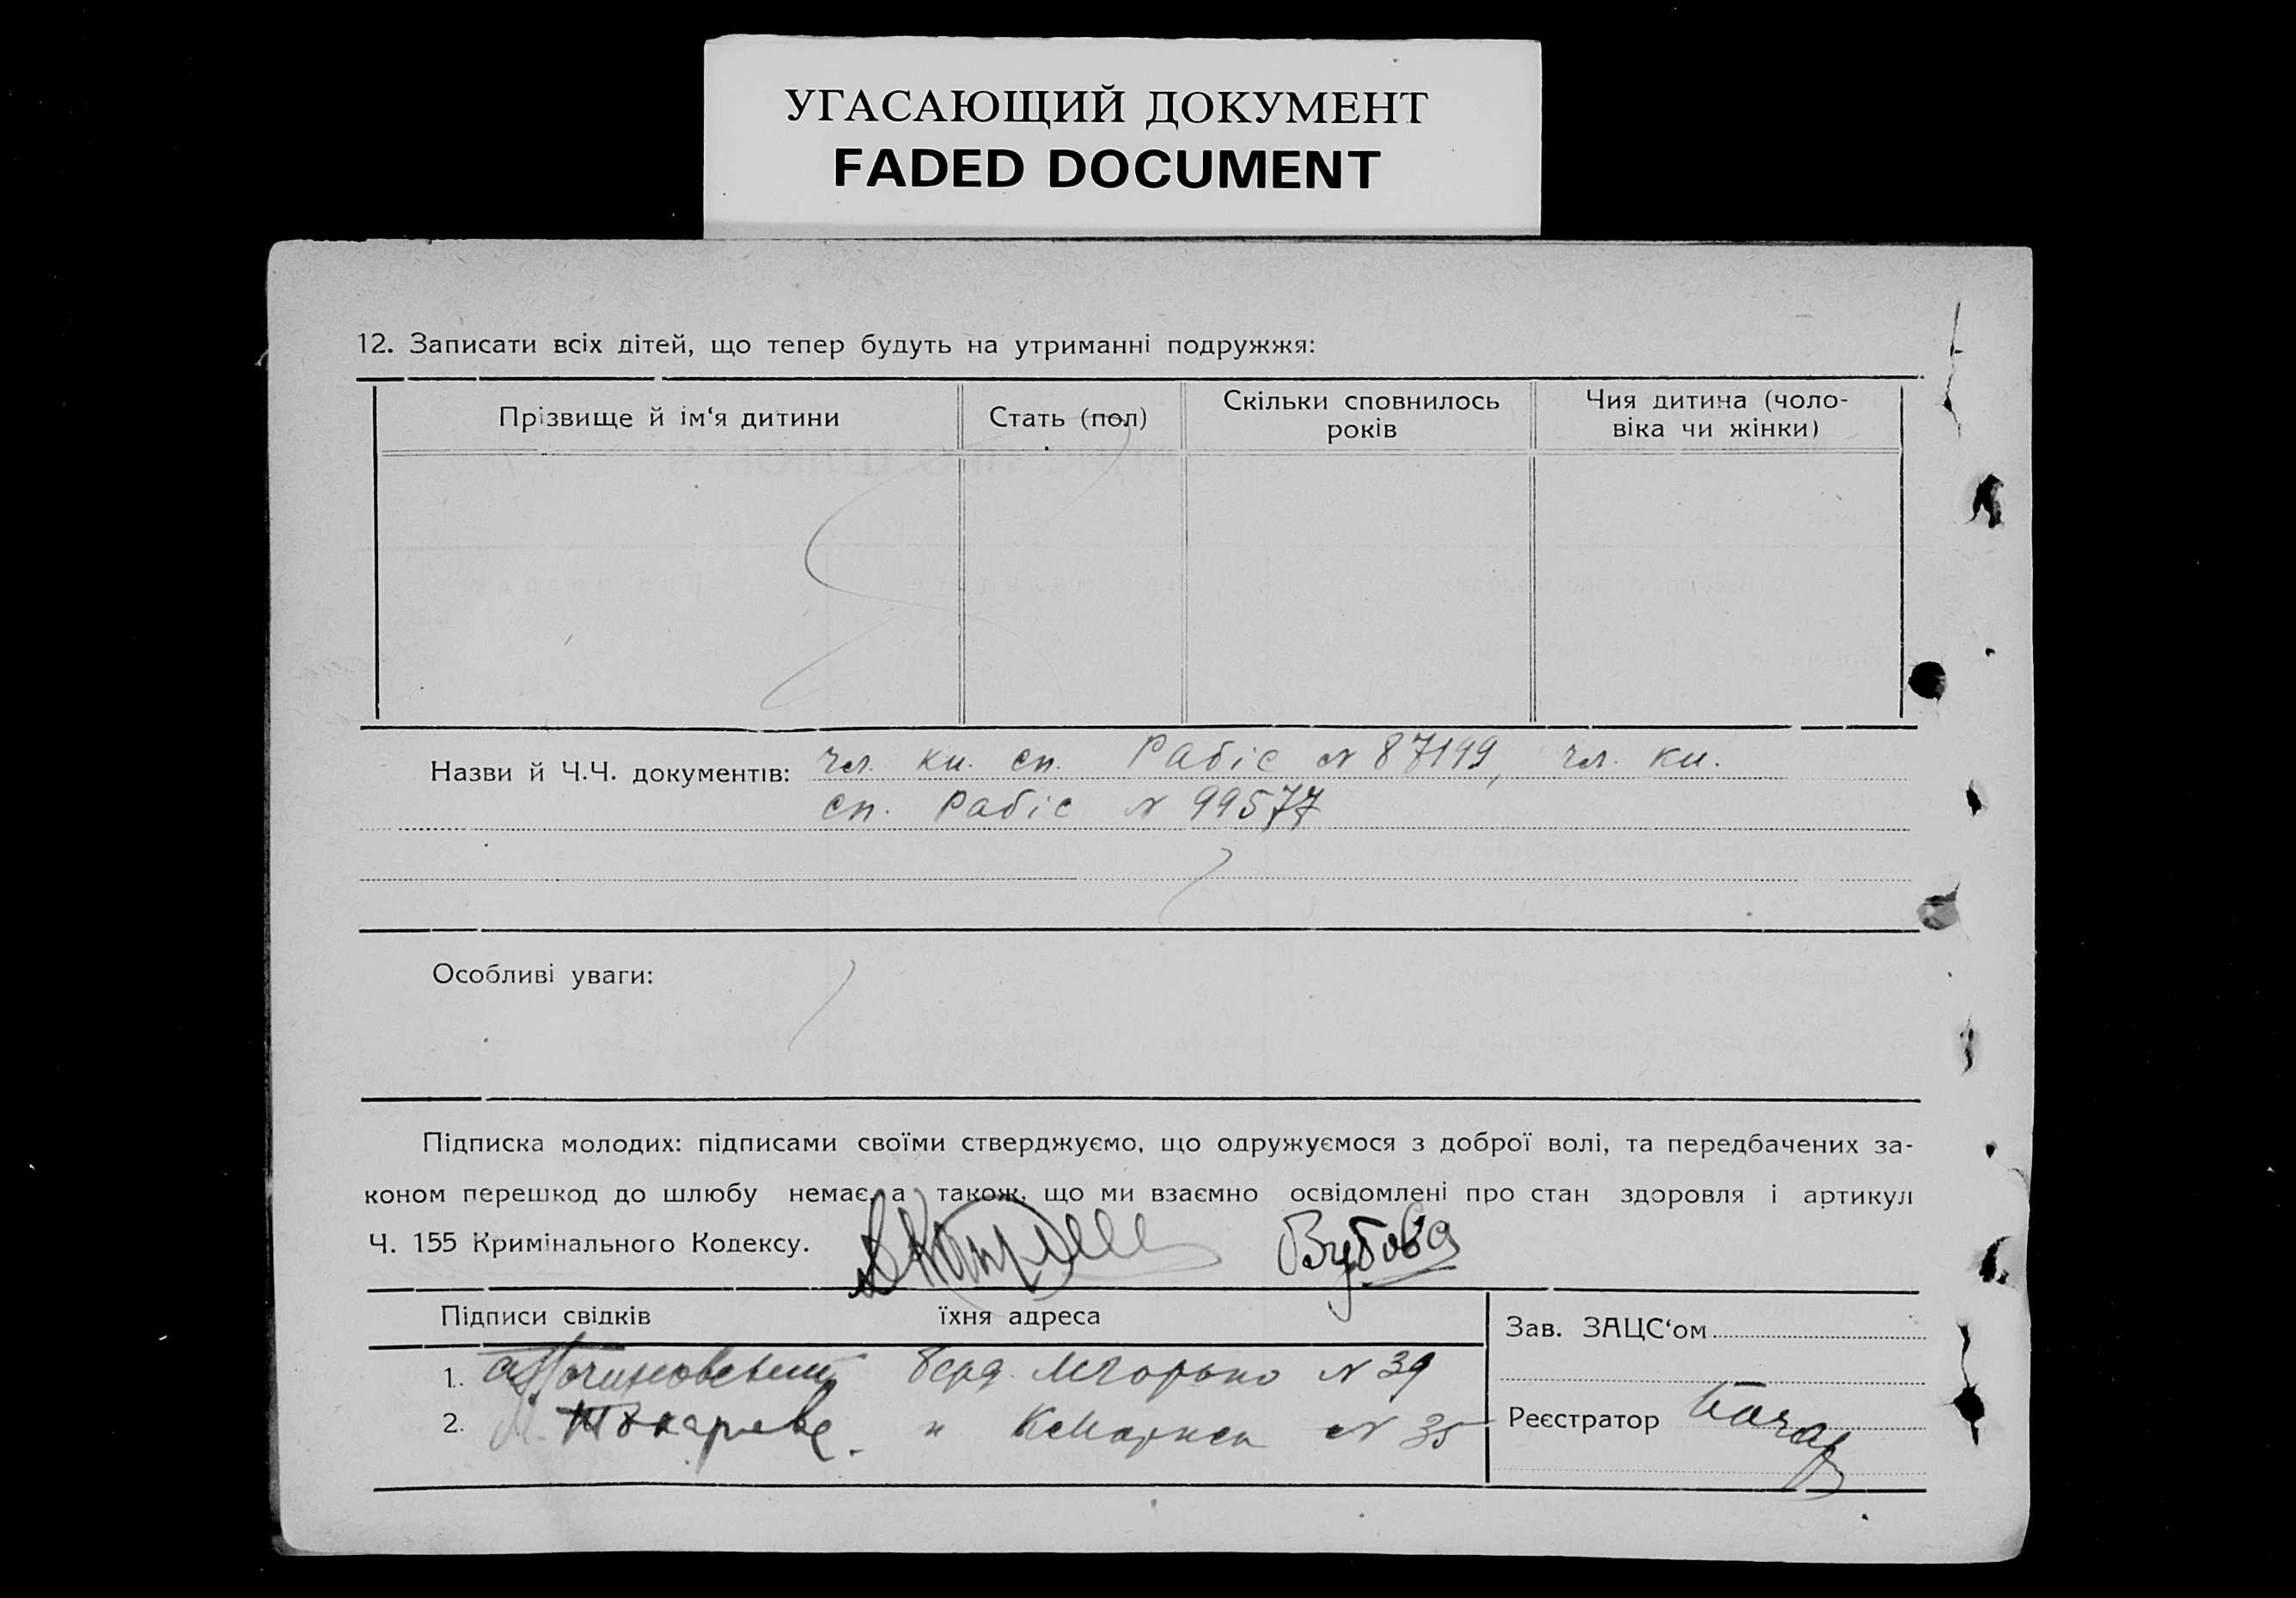 УГАСАЮЩИЙ ДОКУМЕНТ
FADED DOCUMENT
12. Записати всіх дітей, що тепер будуть на утриманні подружжя:
Прізвище й ім‘я дитини
Стать (пол)
Скільки сповнилось
років
Чия дитина (чоло-
віка чи жінки)
Назви й Ч.Ч. документів: чл. кн. сп. Рабіс № 87199, чл. кн.
сп. Рабіс № 99577
Особливі уваги:
Підписка молодих: підписами своїми стверджуємо, що одружуємося з доброї волі, та передбачених за-
коном перешкод до шлюбу немає, а також, що ми взаємно освідомлені про стан здоровля і артикул
Ч. 155 Кримінального Кодексу.
Підписи свідків їхня адреса
1. № 39
2. М. Токарева " КМаркса № 35
Зав. ЗАЦС‘ом
Реєстратор